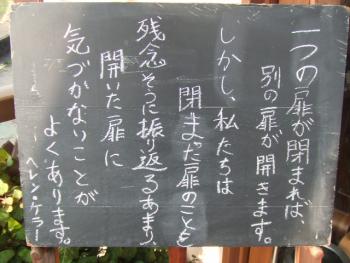 一つの扉が閉まれば、
別の扉が開きます。
しかし、私たちは
閉まった扉のことを
残念そうに振り返るあまり、
開いた扉に
気づかないことが
よくあります。
ヘレン・ケラー